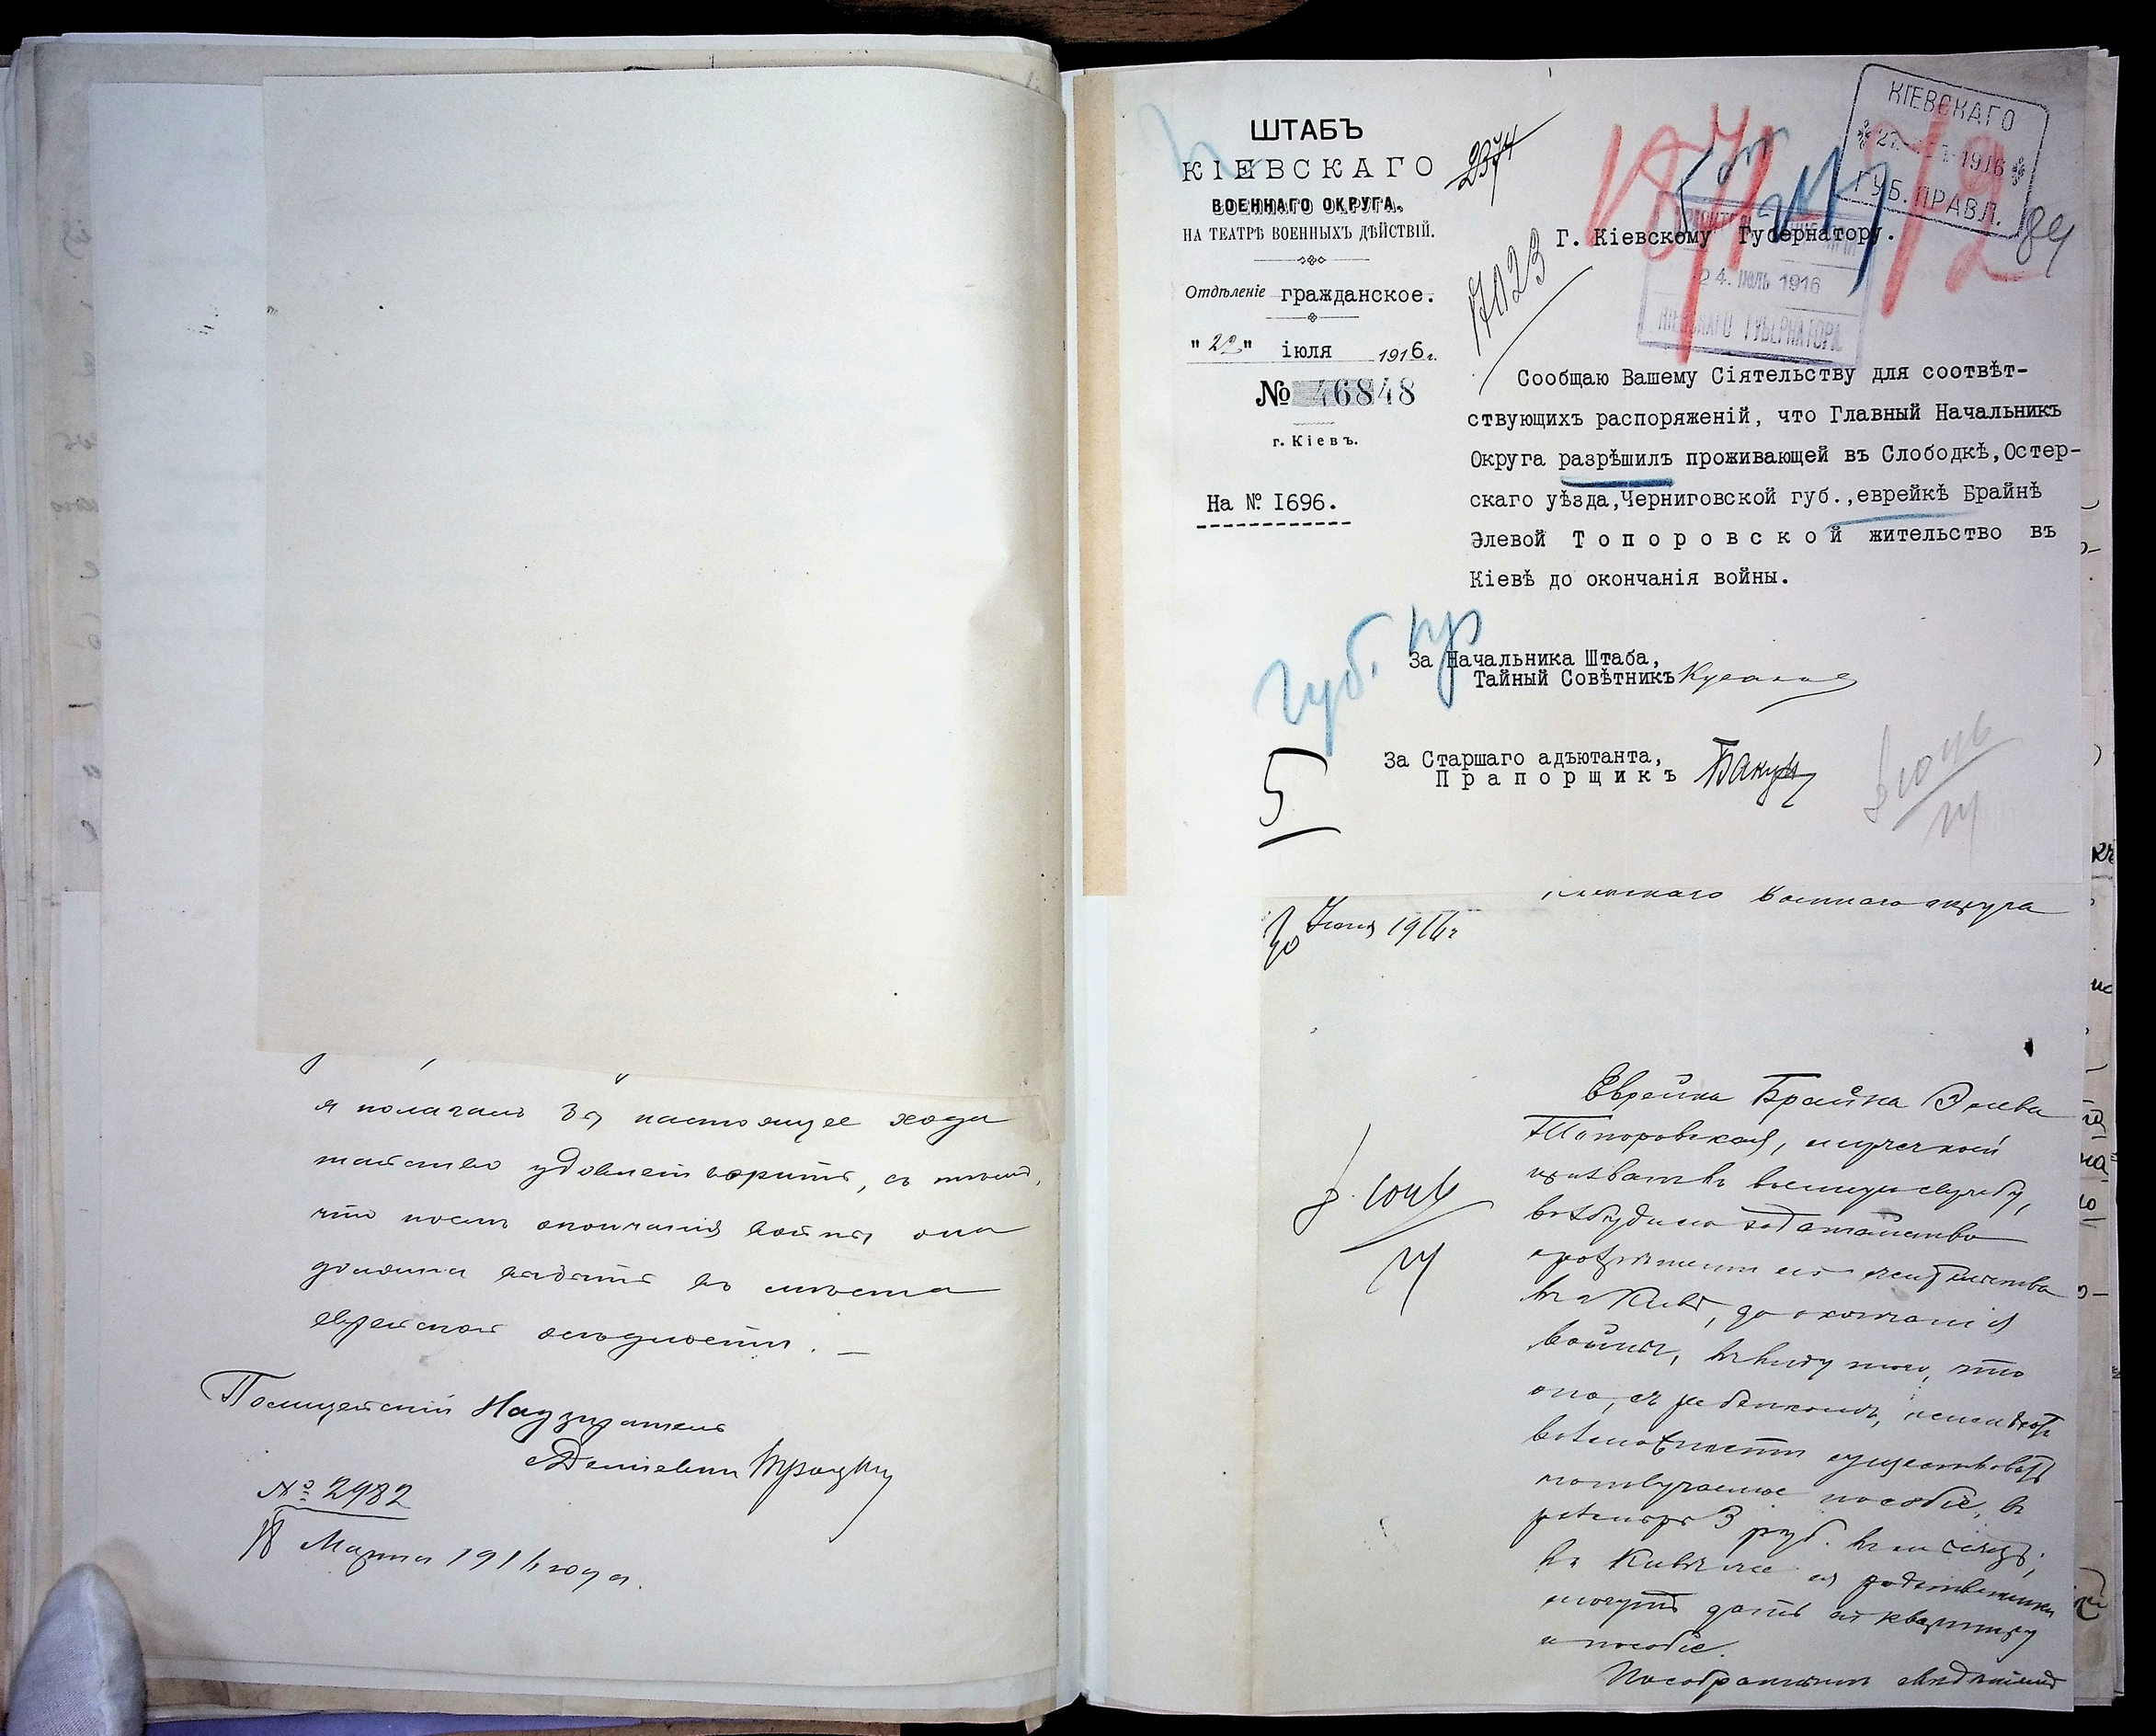 я полагалъ бы настоящее хода
тайство удовлетворить, съ тѣмъ,
что послѣ окончанія войны она
должна выѣхать въ мѣста
еврейской осѣдлости. —
Полицейскій Надзиратель
№ 2982
18 Марта 1916 года.
ШТАБЪ
КІЕВСКАГО
ВОЕННАГО ОКРУГА,
НА ТЕАТРѢ ВОЕННЫХЪ ДѢЙСТВІЙ.
Отдѣленіе гражданское.
"22" іюля 1916 г.
№ 46848
г. Кіевъ.
На № I696.
2374
17023
КІЕВСКАГО
1916
ГУБ. ПРАВЛ.
84
Г. Кіевскому Губернатору.
24. ІЮЛЬ 1916
КІЕВСКАГО ГУБЕРНАТОРА
Сообщаю Вашему Сіятельству для соотвѣт-
ствующихъ распоряженій, что Главный Начальникъ
Округа разрѣшилъ проживающей въ Слободкѣ,Остер-
скаго уѣзда,Черниговской губ.,еврейкѣ Брайнѣ
Элевой Топоровской жительство въ
Кіевѣ до окончанія войны.
Губ. пр
За Начальника Штаба,
Тайный Совѣтникъ
За Старшаго адъютанта,
Прапорщикъ
5
Военнаго округа
Іюня 1916 г
Еврейка Брайна Элева
Топоровская, мужъ коей
призванъ на военную службу,
возбудила ходатайство
о разрѣшеніи ей жительства
въ г. Кіевѣ, до окончанія
войны, въ виду того, что
она, съ ребенкомъ, не имѣетъ
возможности существовать
на получаемое пособіе, въ
размѣрѣ 3 руб. въ мѣсяцъ;
въ Кіевѣ же ея родственники
могутъ дать ей квартиру
и пособіе.
По собраннымъ свѣдѣніямъ